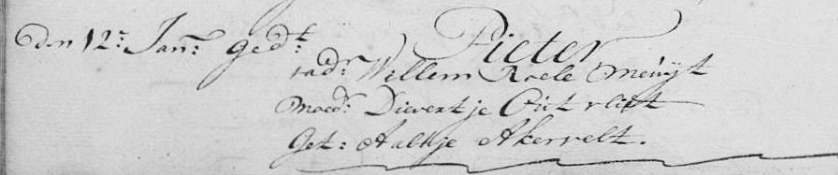 den 12: Jan: gedt: Pieter
vadr: Willem Roele Meuijt
moedr: Dievertje Outvliet
Get: Aaltje Akervelt.